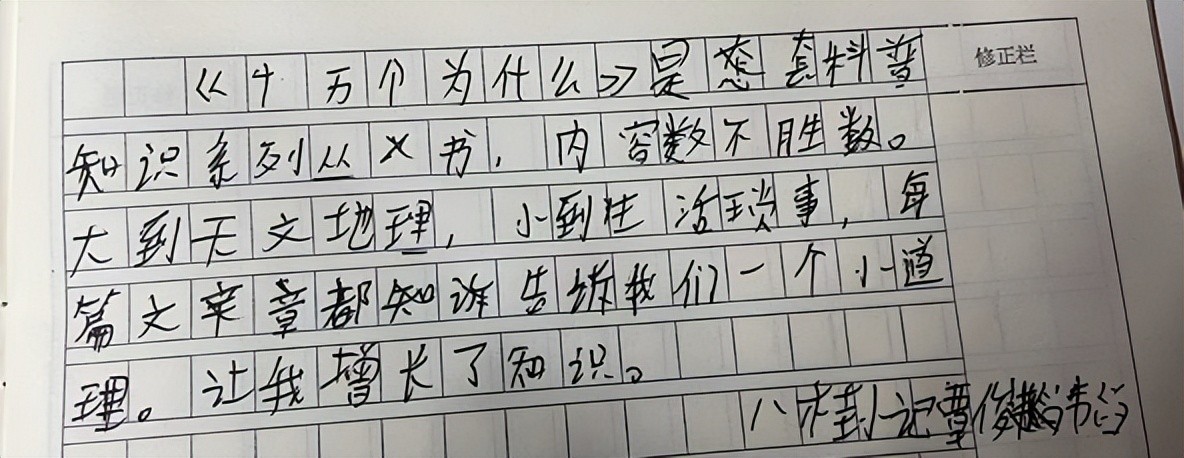 《十万个为什么》是套科普
修正栏
知识系列丛书，内容数不胜数。
大到天文地理，小到生活琐事，每
篇文章都知诉告我们一个小道
理。让我增长了知识。